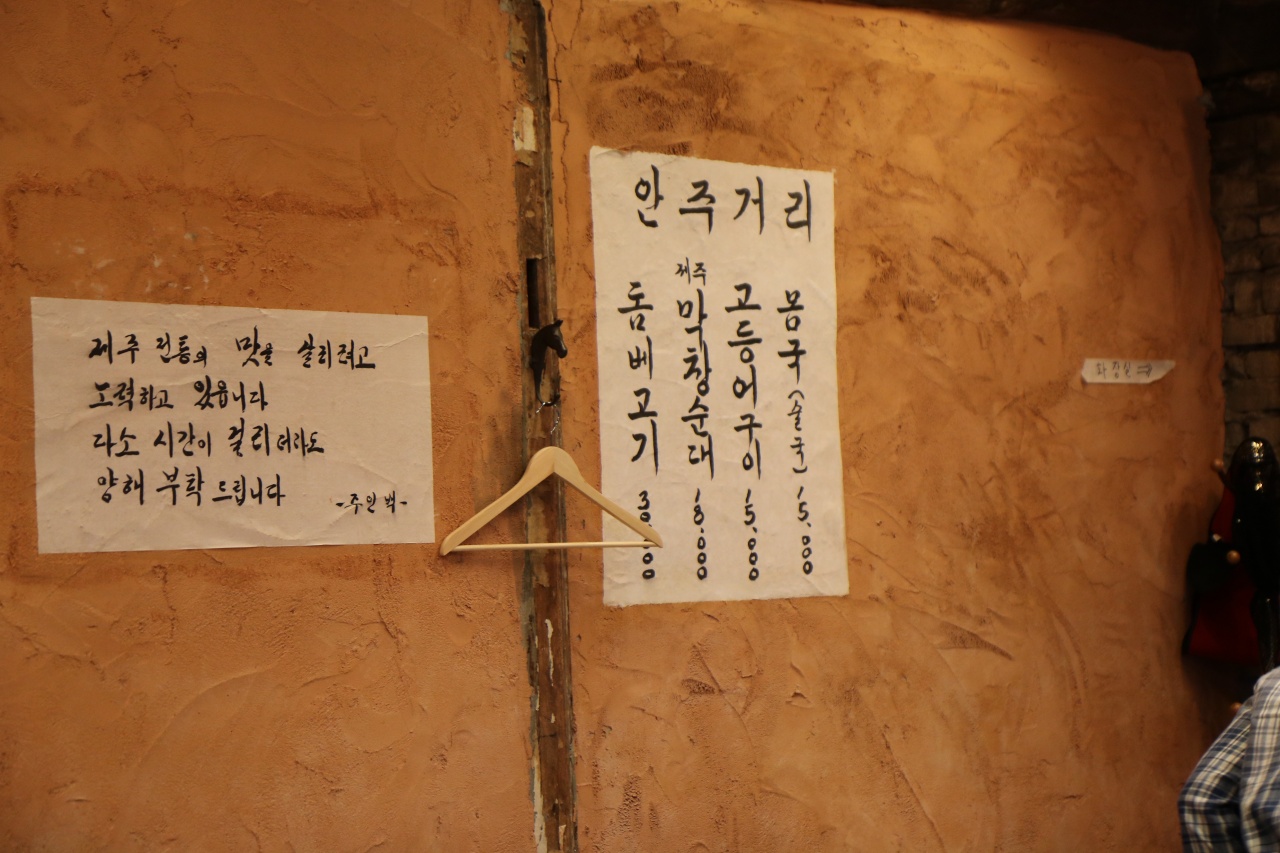 제주 전통의 맛을 살리려고
노력하고 있읍니다
다소 시간이 걸리더라도
양해 부탁 드립니다
-주인 백-
안주거리
돔베고기
제주 막창순대 18,000
고등어구이 15,000
몸국(술국) 15,000
화장실 ⇒